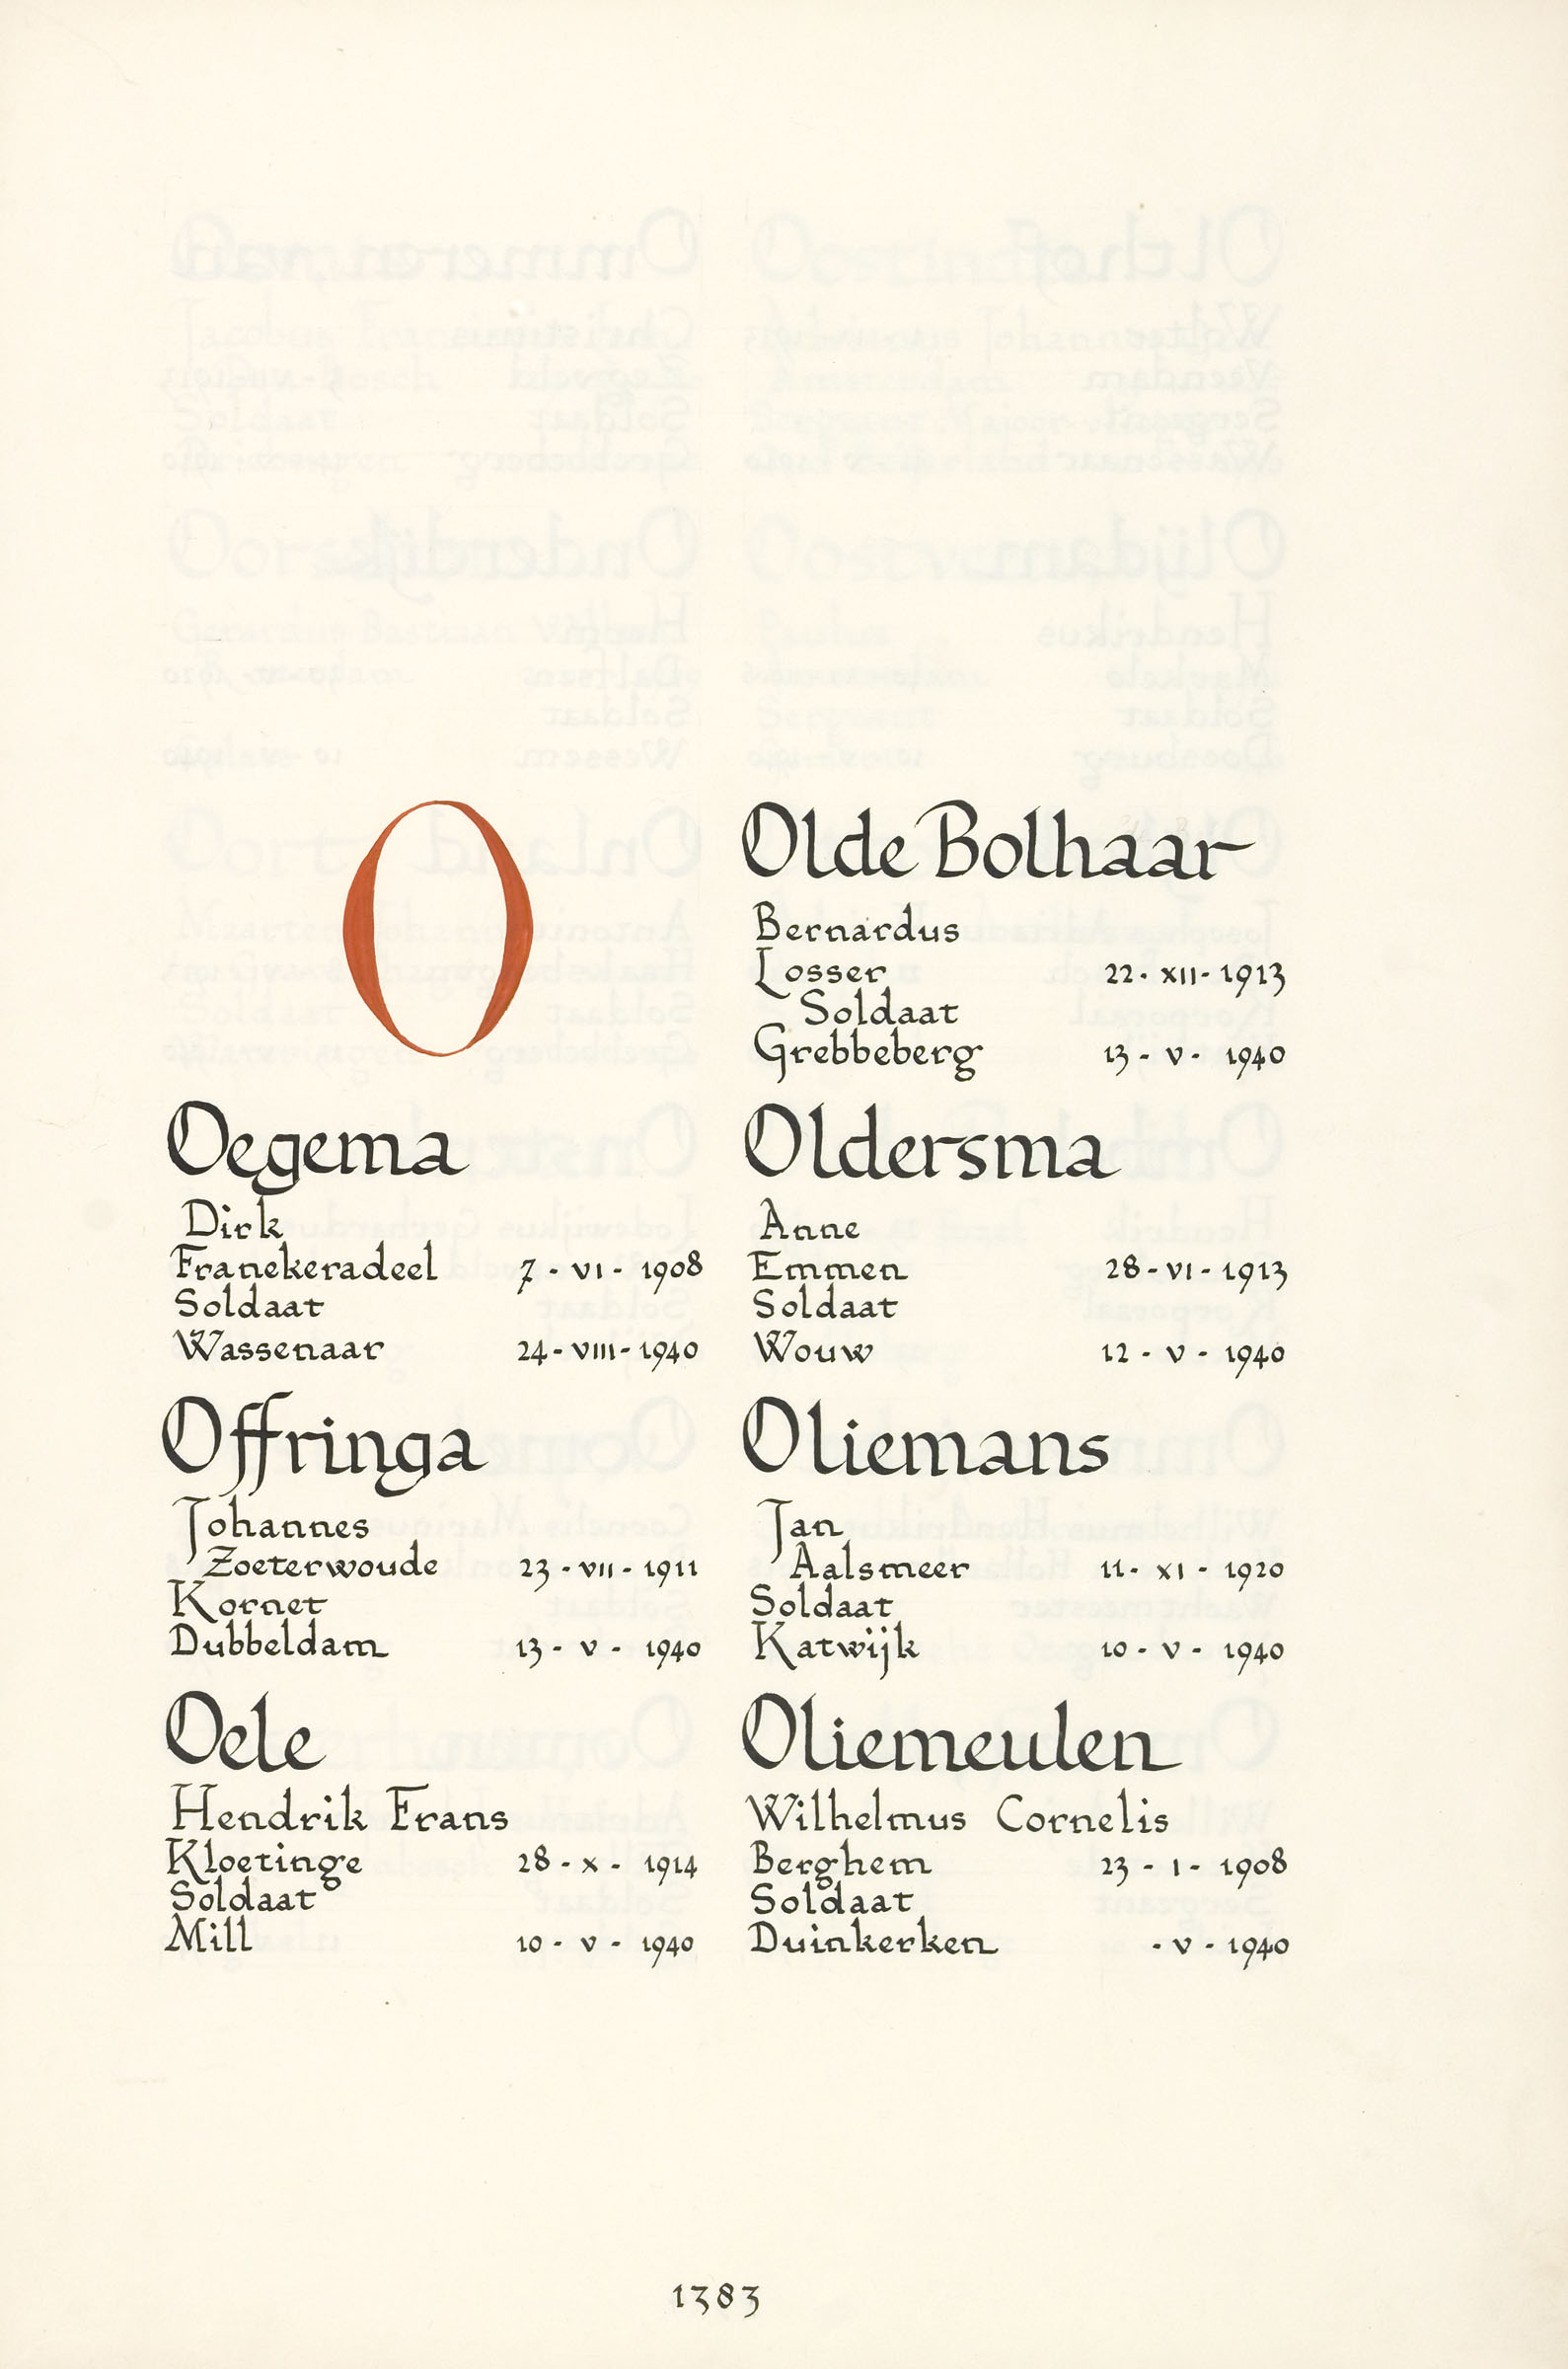 O
Oegema
Dirk
Franekeradeel 7 - VI - 1908
Soldaat
Wassenaar 24 - VIII - 1940
Offringa
Johannes
Zoeterwoude 23 - VII - 1911
Kornet
Dubbeldam 13 - V - 1940
Oele
Hendrik Frans
Kloetinge 28 - X - 1914
Soldaat
Mill 10 - V - 1940
Olde Bolhaar
Bernardus
Losser 22 - XII - 1913
Soldaat
Grebbeberg 13 - V - 1940
Oldersma
Anne
Emmen 28 - VI - 1913
Soldaat
Wouw 12 - V - 1940
Oliemans
Jan
Aalsmeer 11 - XI - 1920
Soldaat
Katwijk 10 - V - 1940
Oliemeulen
Wilhelmus Cornelis
Berghem 23 - I - 1908
Soldaat
Duinkerken - V - 1940
1383